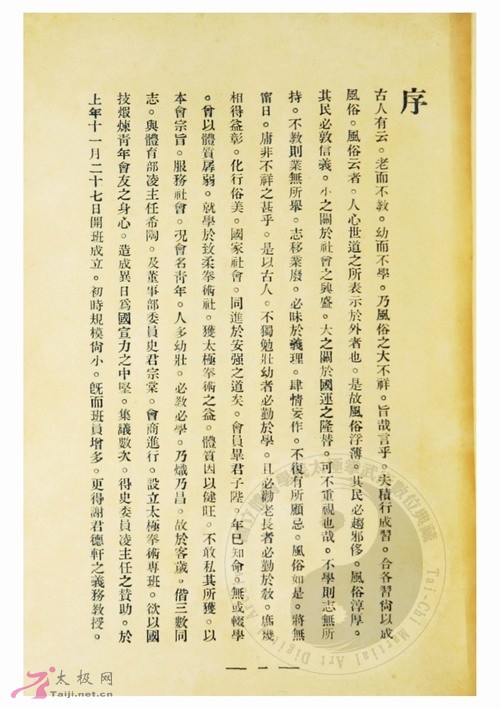 序
古人有云。老而不教。幼而不學。乃風俗之大不祥。旨哉言乎。夫積行成習。合各習尚以成
風俗。風俗云者。人心世道之所表示於外者也。是故風俗浮薄。其民必趨邪侈。風俗淳厚。
其民必敦信義。小之關於社會之興盛。大之關於國運之隆替。可不重視也哉。不學則志無所
持。不教則業無所舉。志移業廢。必昧於義理。肆情妄作。不復有所顧忌。風俗如是。將無
甯日。庸非不祥之甚乎。是以古人。不獨勉壯幼者必勤於學。且必勸老長者必勤於教。庶幾
相得益彰。化行俗美。國家社會。同進於安强之道矣。會員畢君子陛。年已知命。無或輟學
。曾以體質孱弱。就學於致柔拳術社。獲太極拳術之益。體質因以健旺。不敢私其所獲。以
本會宗旨。服務社會。况會名青年。人多幼壯。必教必學。乃熾乃昌。故於客歲。偕三數同
志。與體育部凌主任希陶。及董事部委員史君宗棠。會商進行。設立太極拳術專班。欲以國
技煅煉青年會友之身心。造成異日爲國宣力之中堅。集議數次。得史委員凌主任之贊助。於
上年十一月二十七日開班成立。初時規模尚小。旣而班員增多。更得謝君德軒之義務教授。
一
太极网
Taiji.net.cn
Tai-Chi Martial Art Digi